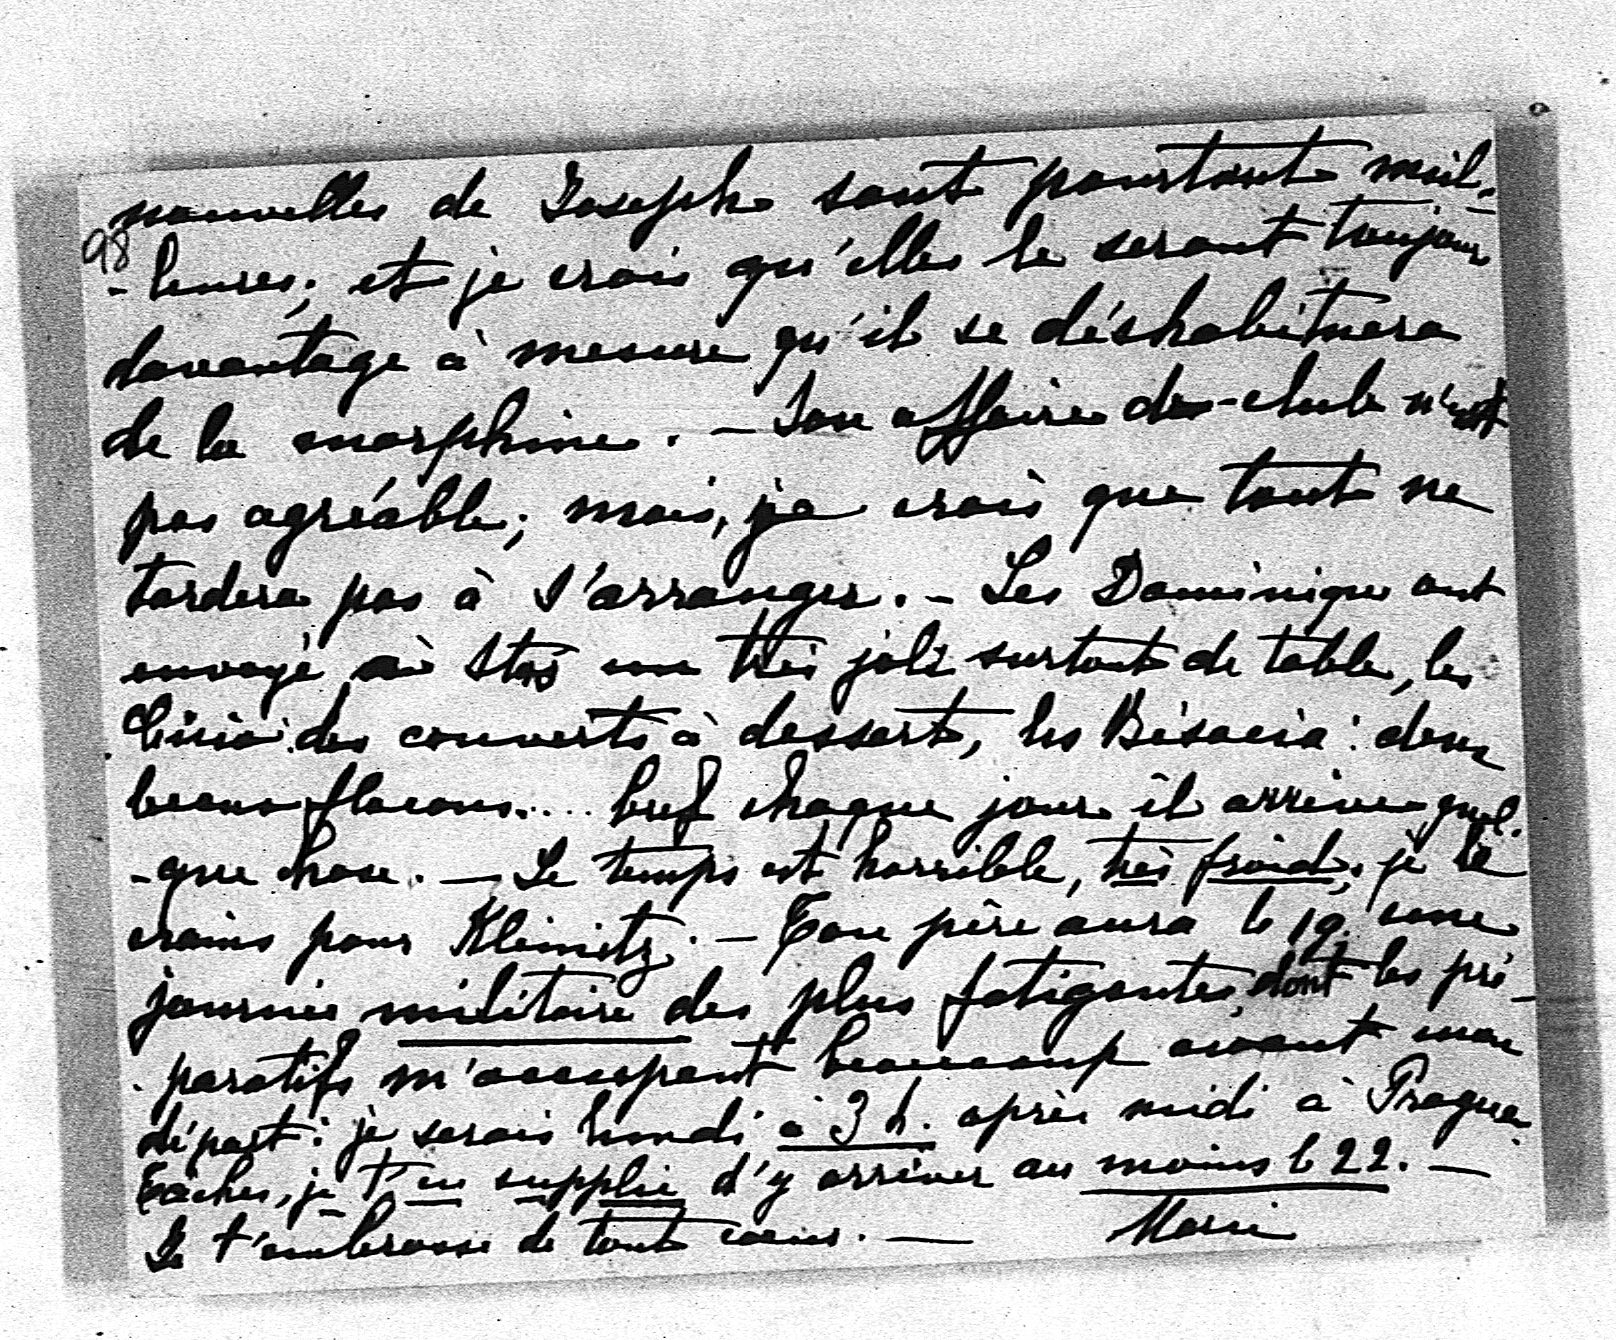 nouvelles de Joseph sont pourtant meil-
98
-leures; et je crois qu'elles le seront toujours
davantage à mesure qu'il se déshabituera
de la morphine. — Son affaire de club n'est
pas agréable; mais, je crois que tout ne
tardera pas à s'arranger. — Les Dominique ont
envoyé à Staś un très joli surtout de table, les
des couverts à dessert, les Bisacia: deux
beaux flacons.... bref chaque jour il arrive quel-
-que chose. — Le temps est horrible, très froid; je le
crains pour Klenitz. — Ton père aura le 19. une
journée militaire des plus fatigantes dont les pré-
-paratifs m'occupent beaucoup avant mon
départ: je serais lundi à 3 h. après midi à Prague.
Tâches, je t'en supplie d'y arriver au moins le 22. —
Je t'embrasse de tout cœur. — Marie